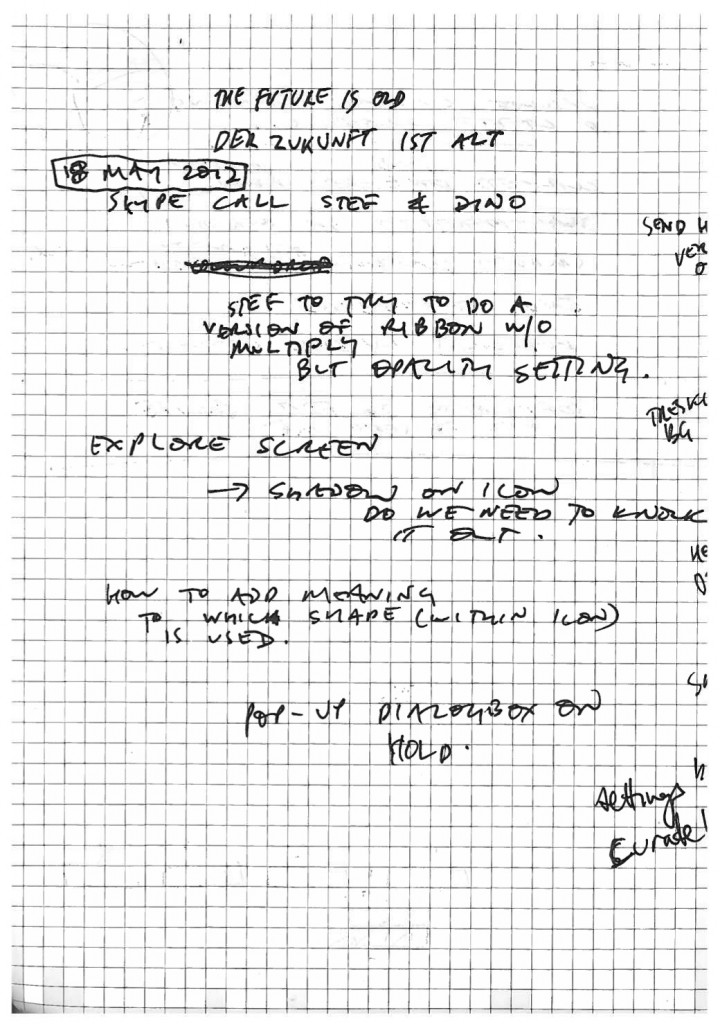 THE FUTURE IS OLD
DER ZUKUNFT IST ALT
18 MAY 2012
SKYPE CALL STEF & DINO
STEF TO TRY TO DO A
VERSION OF RIBBON W/O
MULTIPLY
BUT OPACITY SETTING.
EXPLORE SCREEN
→ SHADOW ON ICON
DO WE NEED TO KNOCK
IT OUT.
HOW TO ADD MEANING
TO WHICH SHAPE (WITHIN ICON)
IS USED.
POP-UP DIALOGBOX ON
HOLD.
SEND
settings